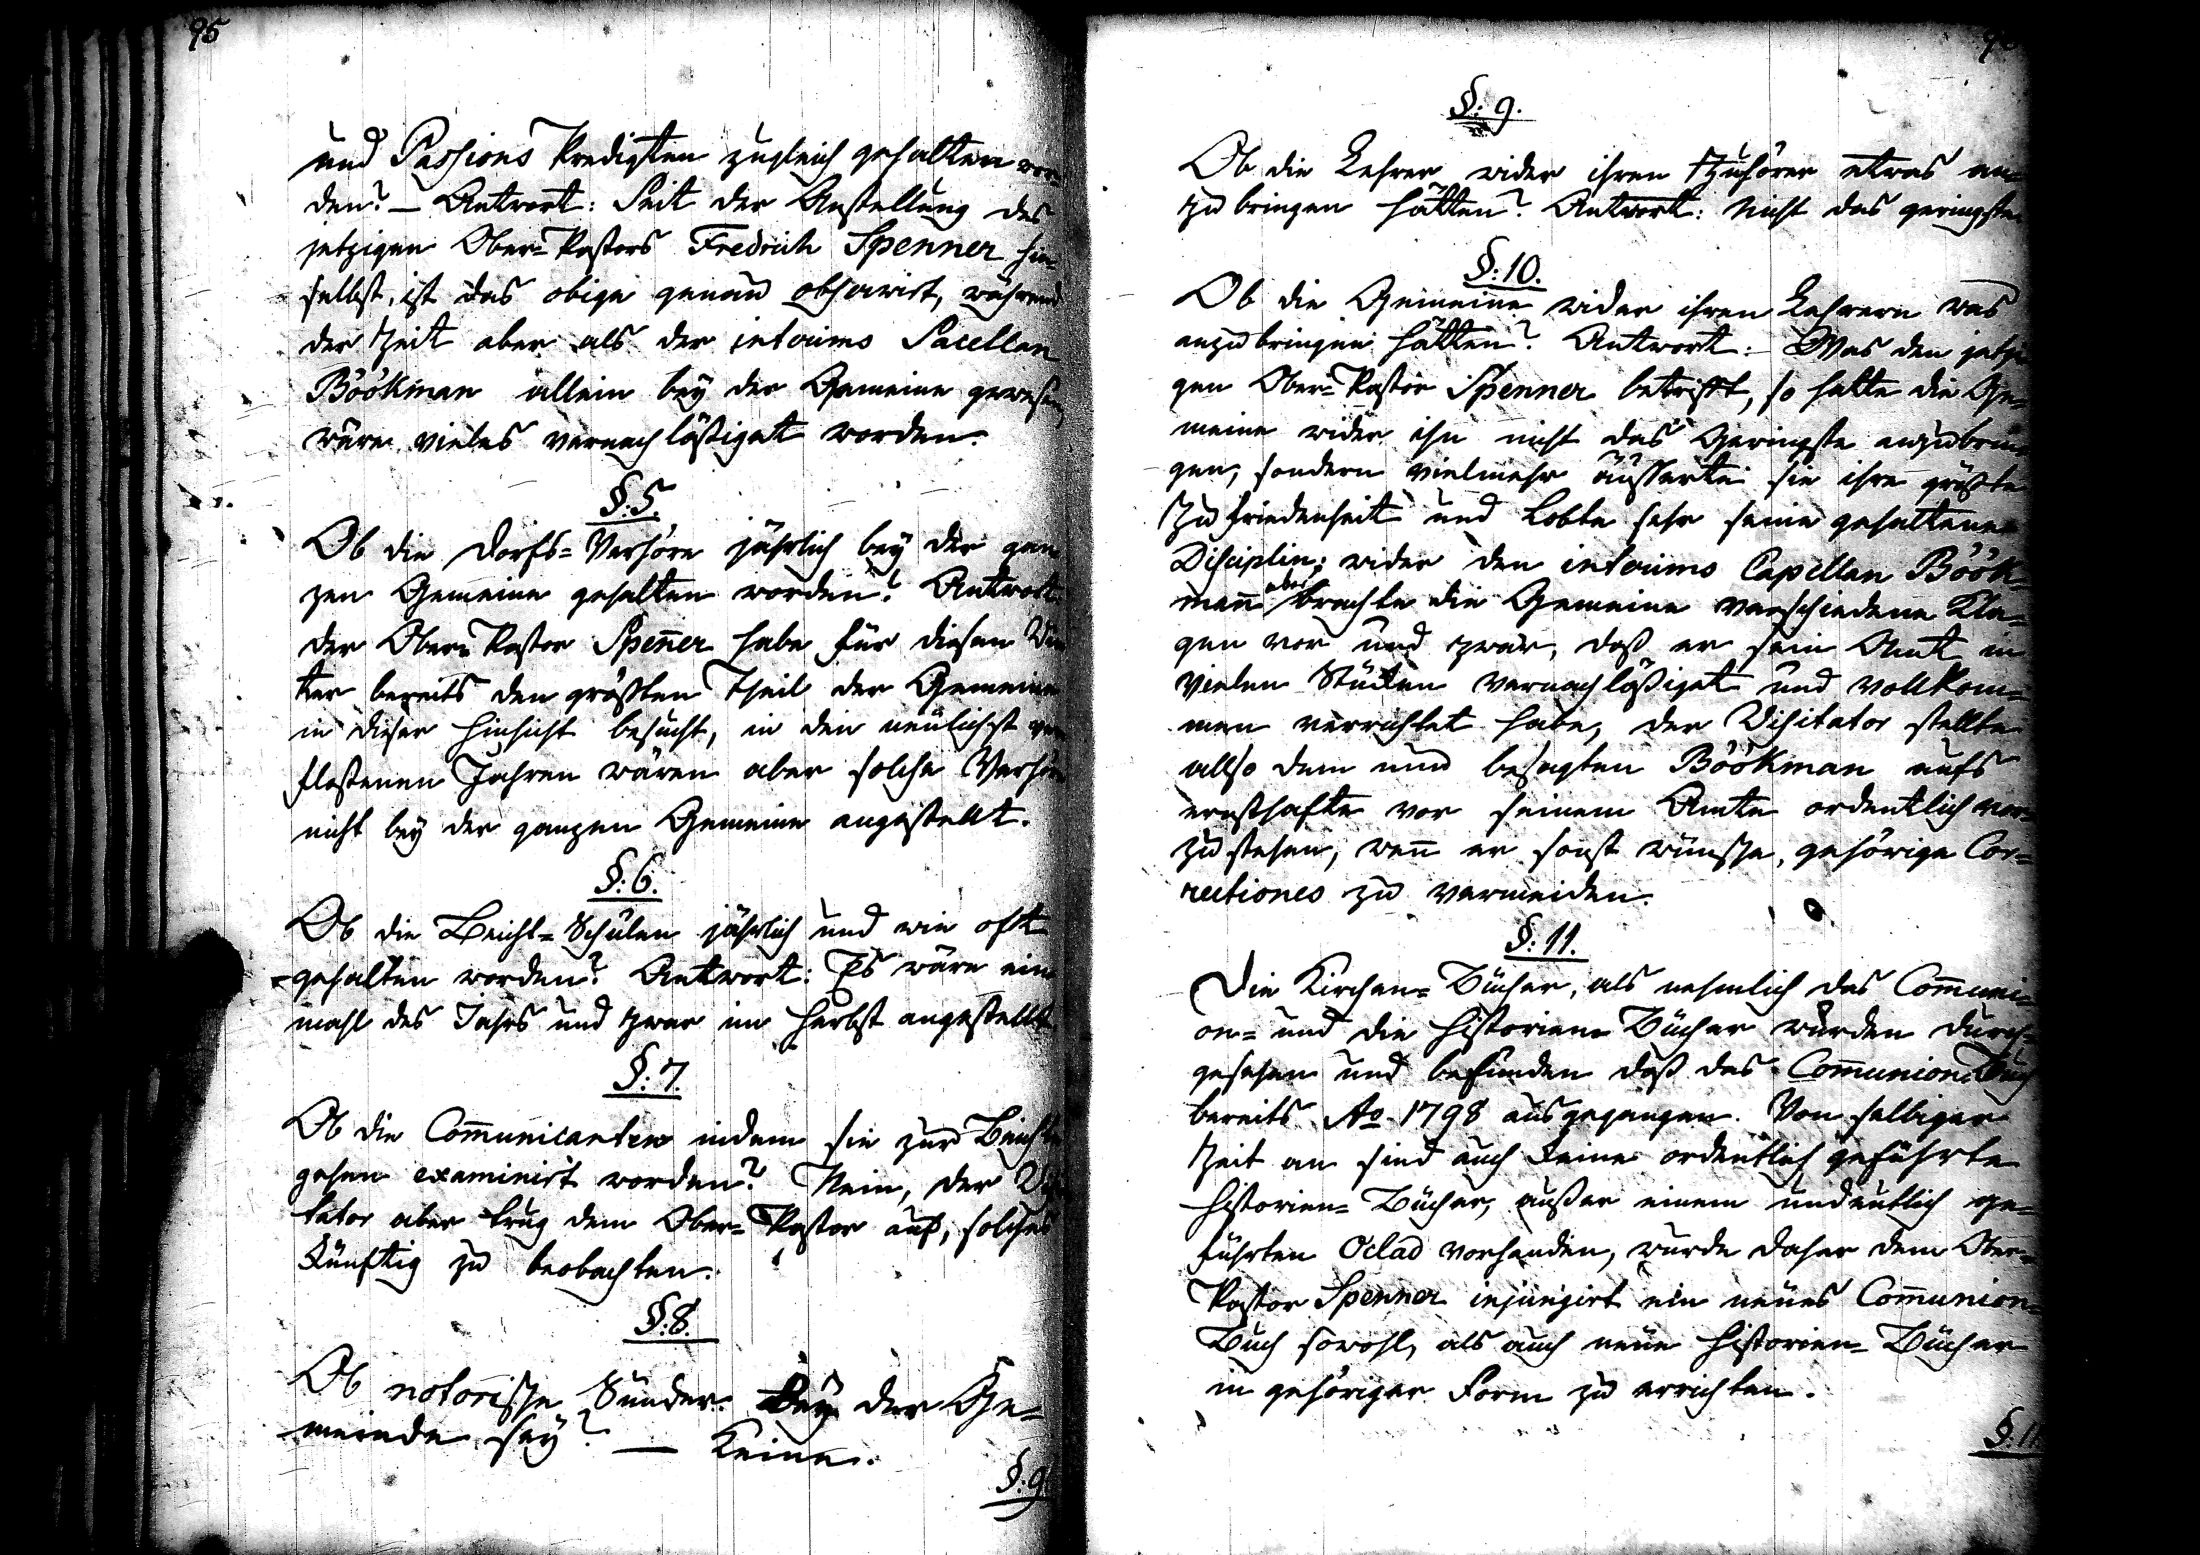 95
und Passions Predigten zugleich gehalten wor-
den? — Antwort: Seit der Anstellung des
jetzigen Ober-Pastors Fredrich Spenner hie-
selbst, ist das obige genau observirt, während
der Zeit aber als der interims Sacellan
Böökman allein bey der Gemeine gewesen,
wäre vieles vernachläßiget worden.
§: 5.
Ob die Dorfs-Verhöre jährlich bey der gan-
zen Gemeine gehalten worden? Antwort:
der Ober-Pastor Spen̄er habe für diesen Win-
ter bereits den größten Theil der Gemeine
in dieser Hinsicht besucht, in den neulichst ver-
floßenen Jahren wären aber solche Verhöre
nicht bey der ganzen Gemeine angestellt.
§: 6.
Ob die Beicht-Schulen jährlich und wie oft
gehalten worden? Antwort: Es wäre ein-
mahl des Jahrs und zwar im Herbst angestellt
§: 7.
Ob die Com̄unicanten indem sie zur Beichte
gehen examinirt worden? Nein, der Visi-
tator aber trug dem Ober-Pastor auf, solches
künftig zu beobachten.
§: 8.
Ob notorische Sünder bey der Ge-
meinde sey? — Keine.
§: 9.
§: 9.
Ob die Lehrer wider ihren Zuhörer etwas an-
zubringen hätten? Antwort: Nicht das geringste
§: 10.
Ob die Gemeine wider ihren Lehrern was
anzubringen hätten? Antwort: Was den jetzi-
gen Ober-Pastor Spenner betrifft, so hatte die Ge-
meine wider ihn nicht das Geringste anzubrin-
gen, sondern vielmehr äusserte sie ihre größte
Zufriedenheit und lobte sehr seine gehaltene
Disciplin; wider den interims Capellan Böök-
man̄ aber brachte die Gemeine verschiedene Kla-
gen vor und zwar, daß er sein Amt in
vielen Stücken vernachläßiget und vollkom-
men verrichtet habe, der Visitator stellte
also dem nun besagten Böökman aufs
ernsthafte vor seinem Amte ordentlich vor-
zustehen, wen̄ er sonst wünsche, gehörige Cor-
rectiones zu vermeiden.
§: 11.
Die Kirchen-Bücher, als nehmlich das Com̄uni-
on- und die Historien-Bücher wurden durch-
gesehen und befunden daß das Com̄union Buch
bereits Ao 1798 ausgegangen. Von selbiger
Zeit an sind auch keine ordentlich geführte
Historien-Bücher, außer einem undeutlich ge-
führten Oclad vorhanden, wurde daher dem Ober-
Pastor Spenner injungirt ein neues Com̄union-
Buch sowohl, als auch neue Historien-Bücher
in gehöriger Form zu errichten.